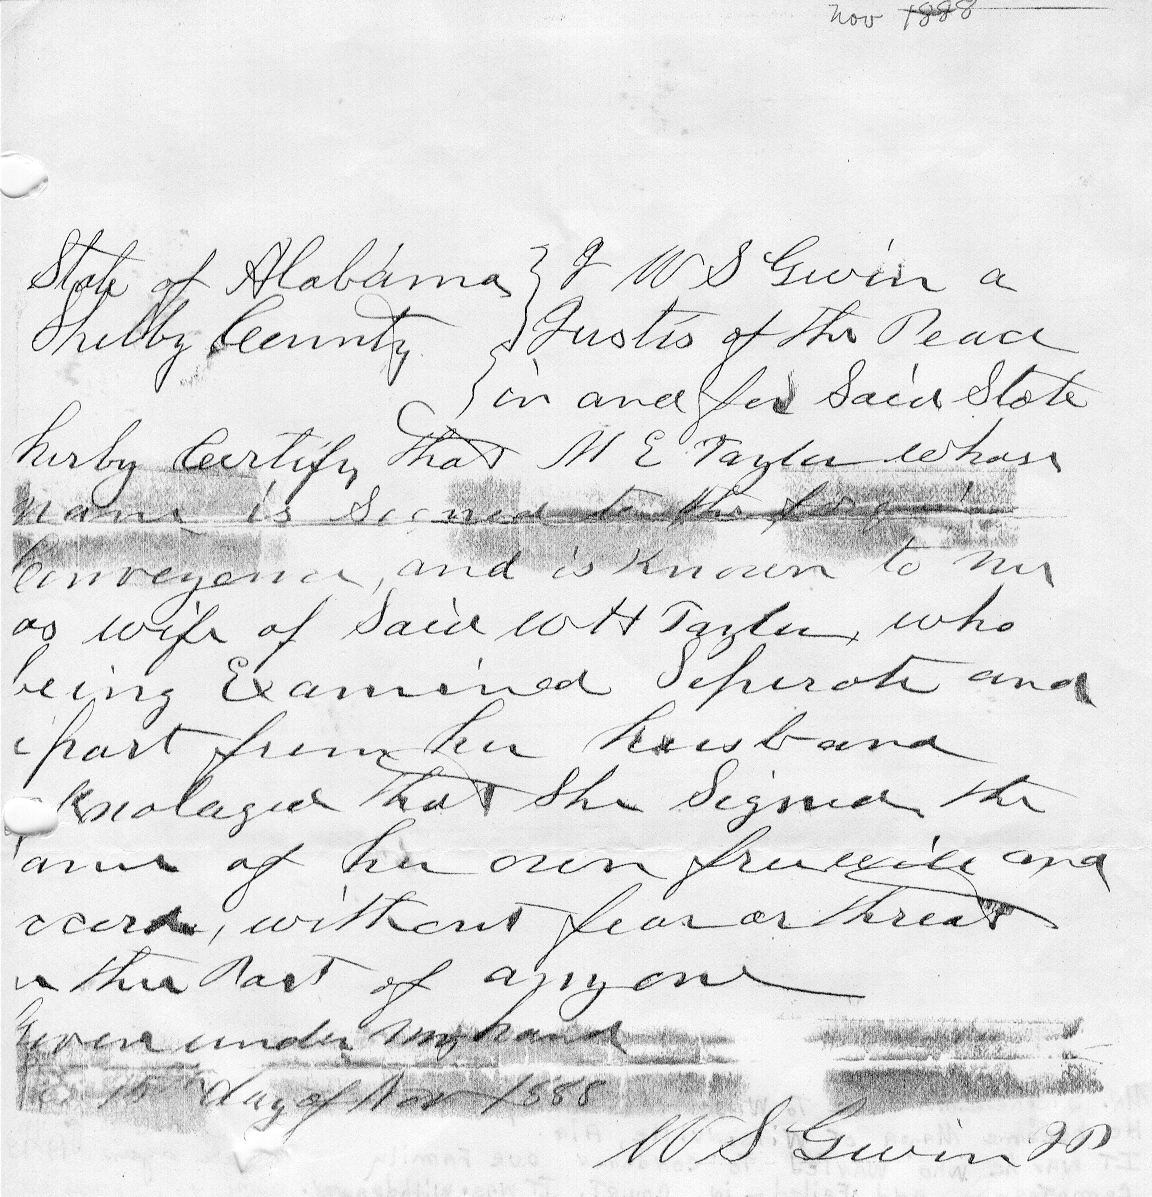 Nov 1888
State of Alabama } I W S Gwin a
Shelby County } Justis of the Peace
} in and for Said State
herby Certify that M E Taylor whose
name is Signed to the
Conveyence, and is Known to me
as wife of Said W H Taylor, who
being Examined Seperate and
apart from her husband
Knolaged that She Signed the
same of her own freewill and
accord, without fear or threat
on the Part of anyone
Given under my hand
15 day of Nov 1888
W S Gwin JP